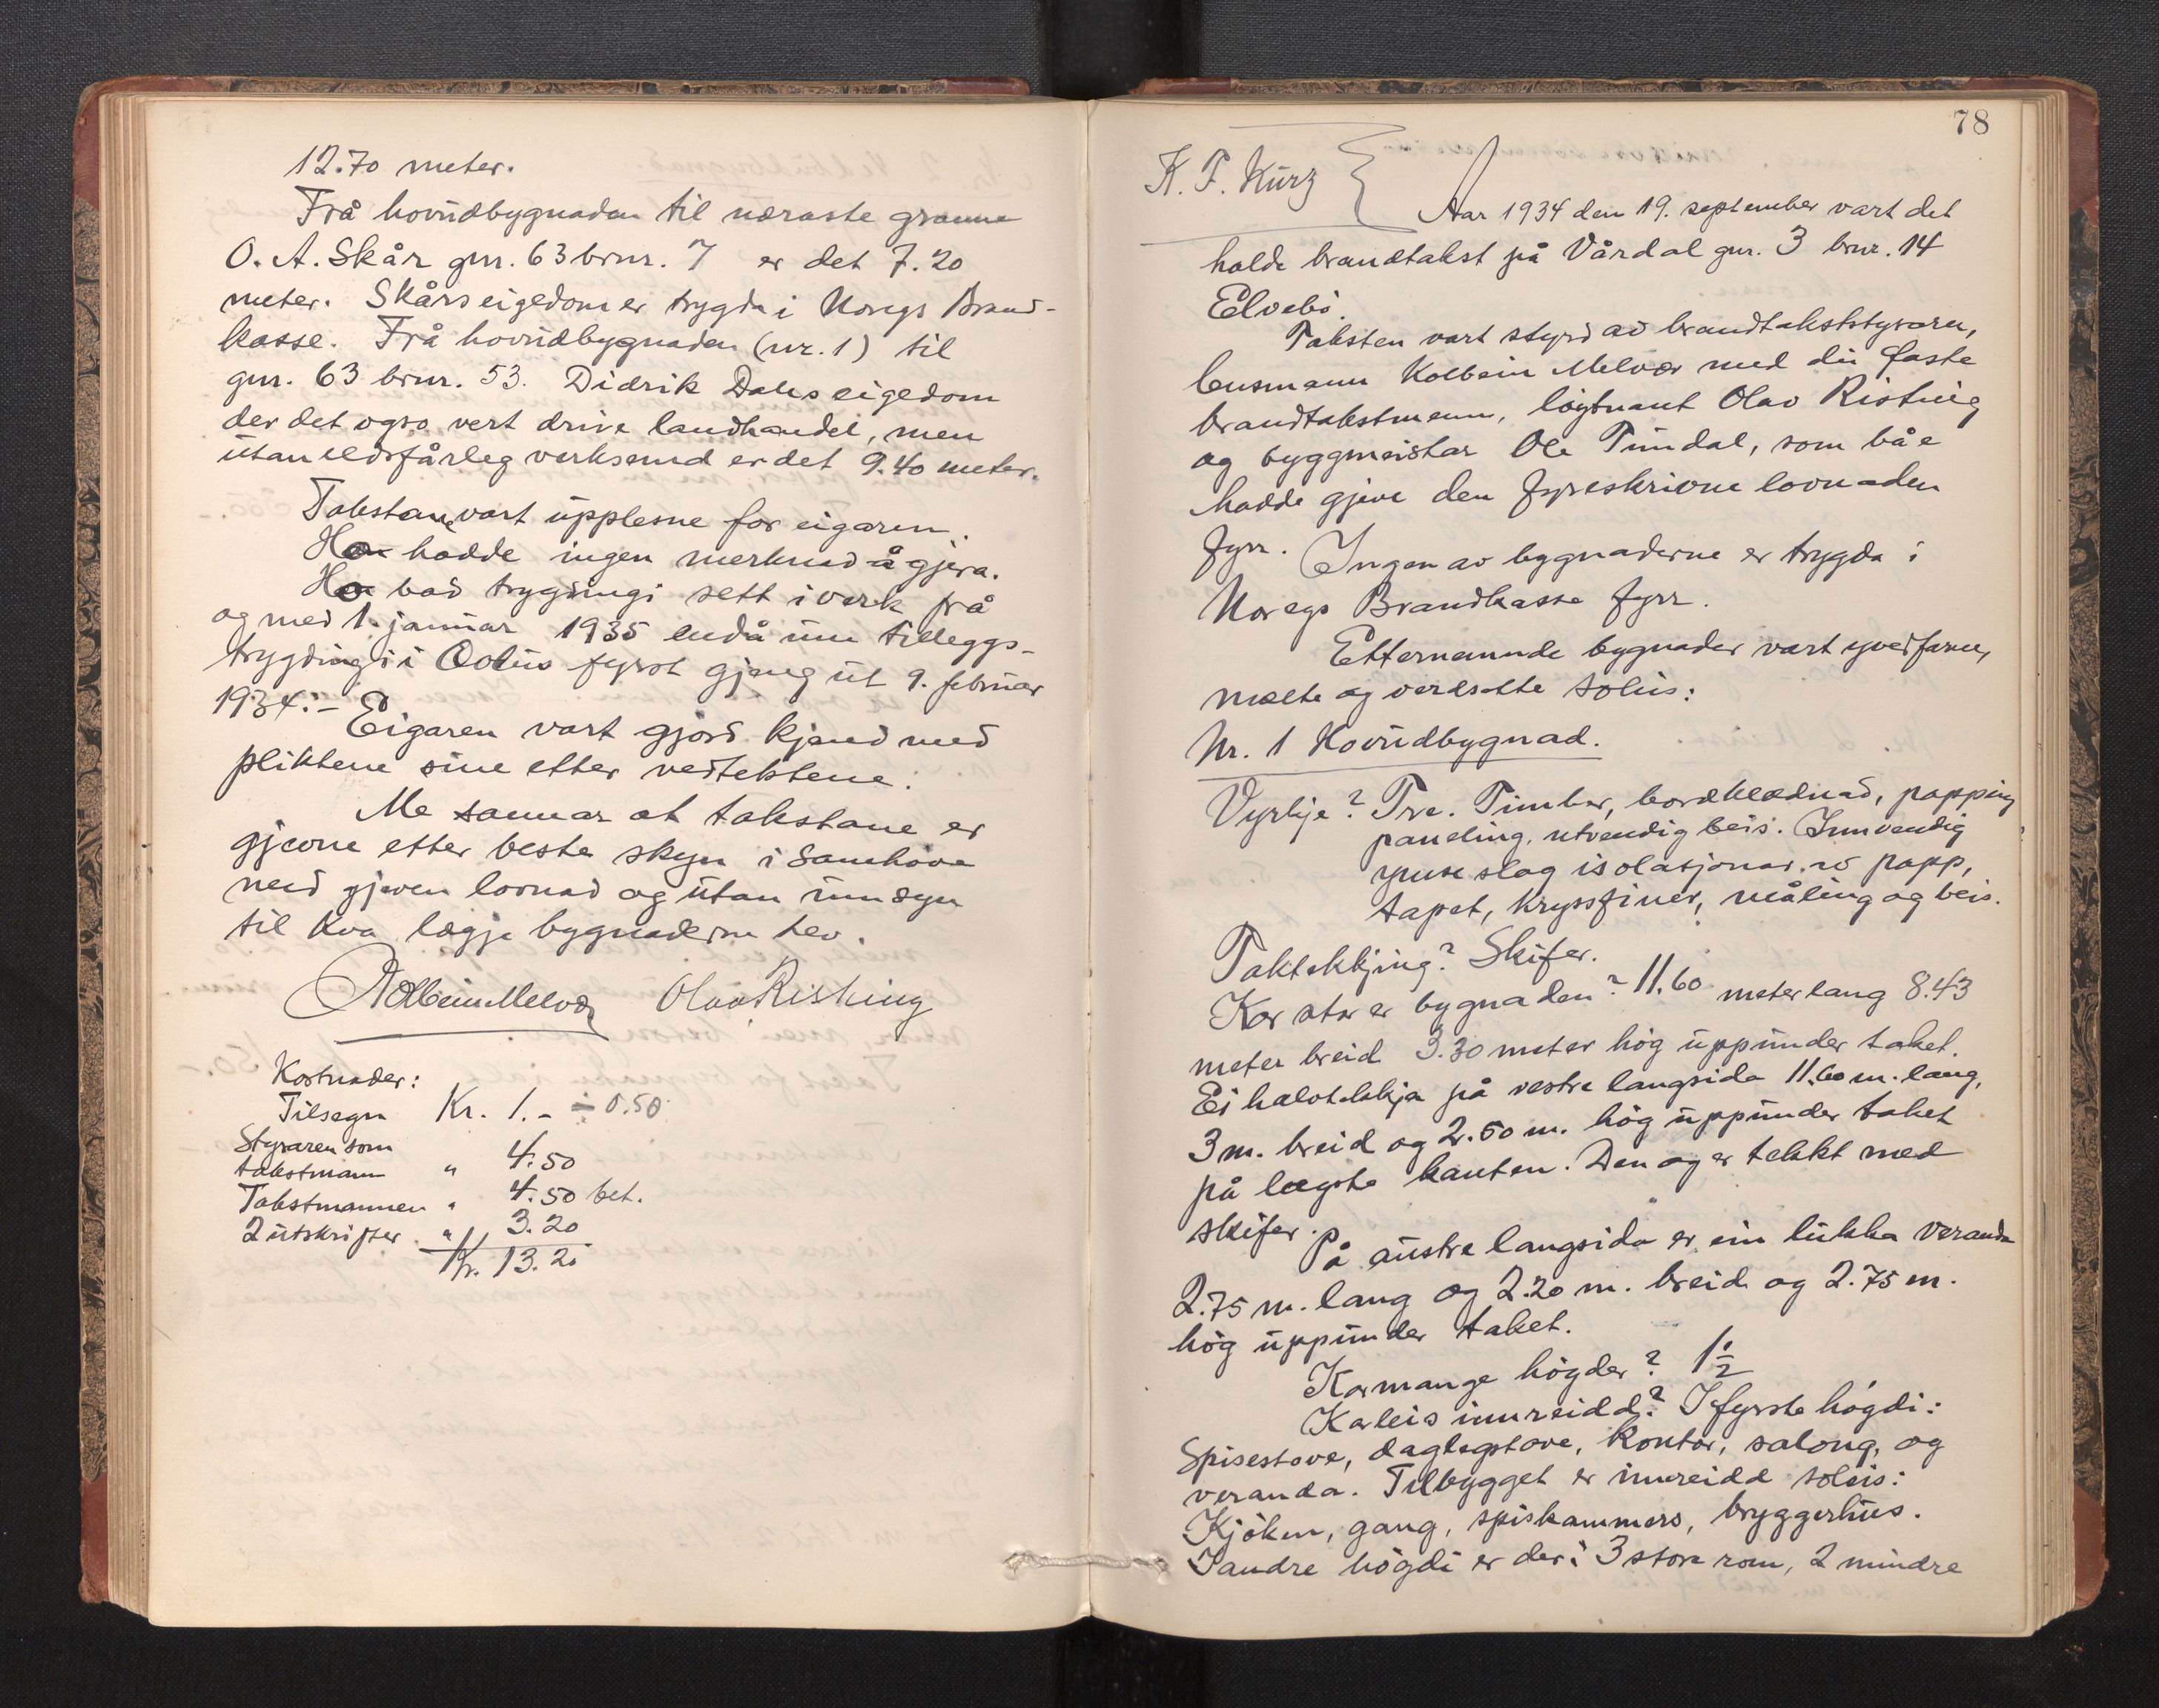 12.70 meter.
Frå hovudbygnaden til næraste granne
O. A. Skår gnr. 63 brnr. 7 er det 7.20
meter. Skårs eigedom er trygda i Noregs Brand-
kasse. Frå hovudbygnaden (nr. 1) til
gnr. 63 brnr. 53. Didrik Dales eigedom
der det ogso vert drive landhandel, men
utan eldsfårleg verksemd er det 9.40 meter.
Takstane vart upplesne for eigaren.
Han hadde ingen merknad å gjera.
Han bad trygdingi sett i verk frå
og med 1. januar 1935 endå um tilleggs-
trygdingi i Æolus fyrst gjeng ut 9. februar
1934.-
Eigaren vart gjord kjend med
pliktene sine etter vedtektene.
Me sannar at takstane er
gjevne etter beste skyn i samhøve
med gjeven lovnad og utan umsyn
til kva lægje bygnaderne hev.
Kolbein Melvær Olav Risting
Kostnader:
Tilsegn Kr. 1.- ÷ 0.50
Styraren som
takstmann " 4.50
Takstmannen " 4.50 bet.
2 utskrifter " 3.20
Kr. 13.20
78
K. F. Kurz
Aar 1934 den 19. september vart det
halde brandtakst på Vårdal gnr. 3 brnr. 14
Elvebø.
Taksten vart styrd av brandtakststyraren,
lensmann Kolbein Melvær med dei faste
brandtakstmenn, løytnant Olav Risting
og byggmeistar Ole Tundal, som båe
hadde gjeve den fyreskrivne lovnaden
fyrr. Ingen av bygnaderne er trygda i
Noregs Brandkasse fyrr.
Etternemnde bygnader vart yverfarne,
mælte og verdsette soleis:
Nr. 1 Hovudbygnad.
Vyrkje? Tre. Timber, bordklædnad, papping
paneling, utvendig beis. Innvendig
ymse slag isolasjonar, so papp,
tapet, kryssfiner, måling og beis.
Taktekkjing? Skifer.
Kor stor er bygnaden? 11.60 meter lang 8.43
meter breid 3.30 meter høg uppunder taket.
Ei halvtekkja på vestre langsida 11.60 m. lang,
3 m. breid og 2.50 m. høg uppunder taket
på lægste kanten. Den og er tekkt med
skifer.
På austre langsida er ein lukka veranda
2.75 m. lang og 2.20 m. breid og 2.75 m.
høg uppunder taket.
Kormange høgder? 1 1/2
Korleis innreidd? I fyrste høgdi:
Spisestove, daglegstove, kontor, salong, og
veranda. Tilbygget er innreidd soleis:
Kjøken, gang, spiskammers, bryggerhus.
I andre høgdi er der: 3 store rom, 2 mindre